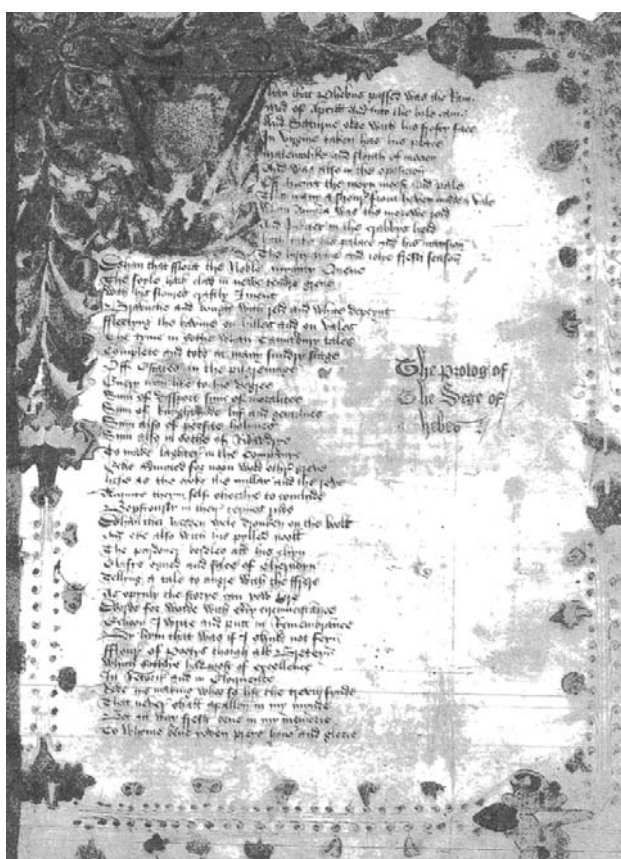 han that Phebus passed was the Ram
myd of Aprill and into the bole cam
And Saturne olde with his frosty face
In Virgine taken had his place
malencolike and slouth of mocion
And was also in the oposicion
Of the moon and pale
That many a shour from heven made avale
Whan Aurora was the morowe red
And Jubiter in the Crabbes hed
Hath take his palace and his mansion
The lusty tyme and joly fressh season
Whan that fflora the Noble myghty Quene
The soyle hath clad in newe tendre grene
With his floures craftly
Braunche and bough with red and white depeynt
ffletyng the bawme on hilles and on vales
The tyme in sothe whan Canterbury tales
Complete and told at many sundry stage
Off in the pilgremage
Every man like to his degre
Sum of Dissport sum of moralite
Sum of knyghthode luf and gentilnes
Sum also of perfite holines
Sum also in sothe of Ribaudye
To make laghter in the Company
admitted for noon wold other greve
as the coke the millar and the reve
them self to conclude
in their termes rude
Whan thei hadden wele dronken on the boll
And eke also with his pylled noll
The pardoner beside all his
and face of
Tellyng a tale to angre with the ffrere
As opynly the storye can you lere
Worde for worde with every circumstance
I write and putt in Remembrance
By him that was if I shuld not feyn
fflour of Poetys though all Breteyn
Which hadde most of excellence
In Retorik and in Eloquence
Rede his making who so list the trewth fynde
That never shall apallen in my mynde
But al way fressh bene in my memorie
To whome bene yoven preys honor and glorie
The prolog of
The Sege of